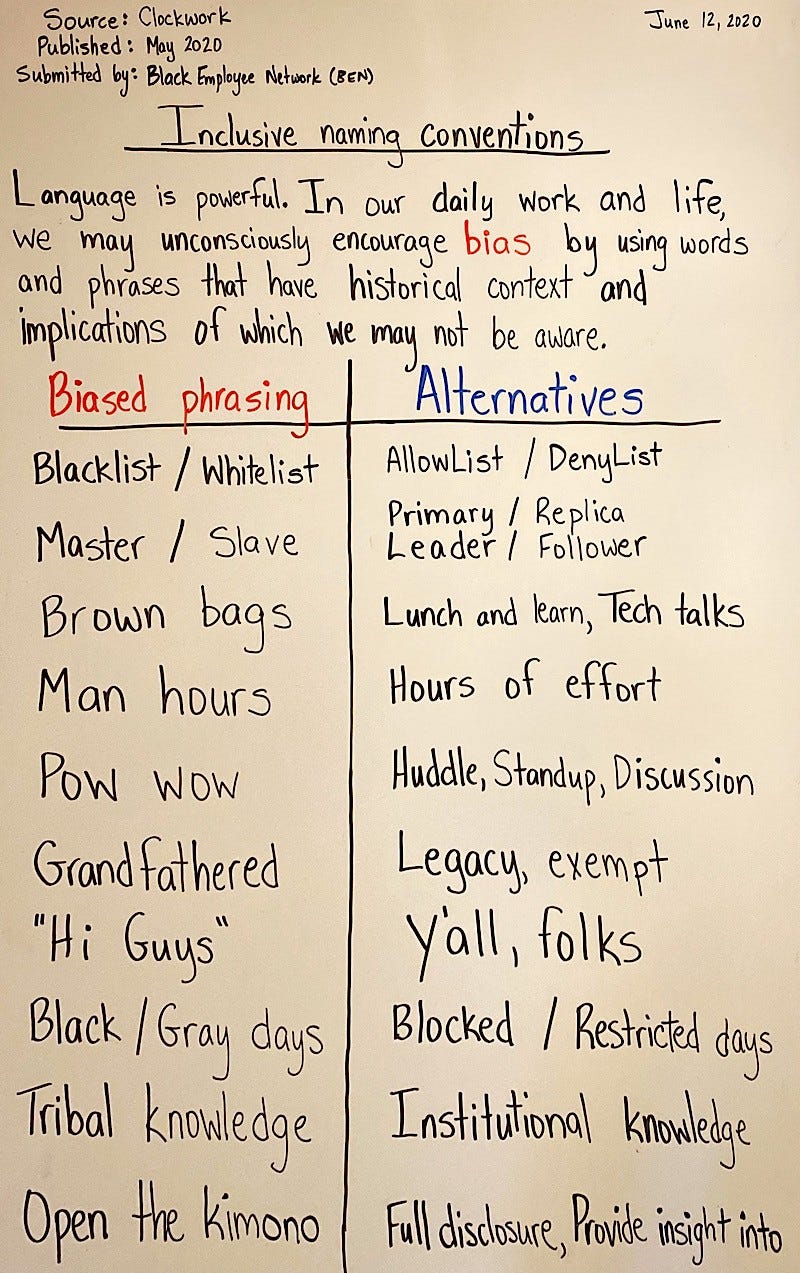 Source: Clockwork
June 12, 2020
Published: May 2020
Submitted by: Black Employee Network (BEN)
Inclusive naming conventions
Language is powerful. In our daily work and life,
we may unconsciously encourage bias by using words
and phrases that have historical context and
implications of which we may not be aware.
Biased phrasing
Alternatives
Blacklist / Whitelist
AllowList / DenyList
Master / Slave
Primary / Replica
Leader / Follower
Brown bags
Lunch and learn, Tech talks
Man hours
Hours of effort
Pow wow
Huddle, Standup, Discussion
Grandfathered
Legacy, exempt
"Hi Guys"
Y'all, folks
Black / Gray days
Blocked / Restricted days
Tribal knowledge
Institutional knowledge
Open the kimono
Full disclosure, Provide insight into